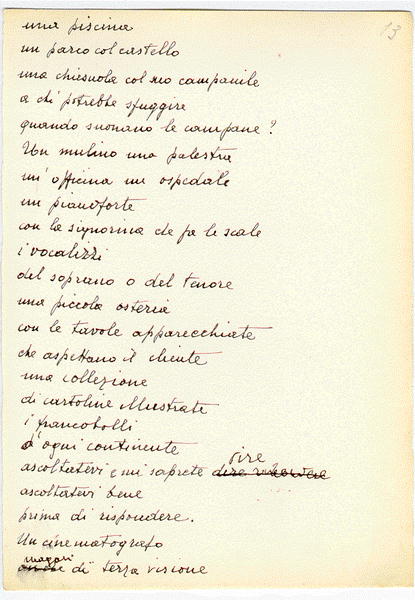 13
una piscina
un parco col castello
una chiesuola col suo campanile
a chi potrebbe sfuggire
quando suonano le campane?
Un mulino una palestra
un'officina un ospedale
un pianoforte
con la signorina che fa le scale
i vocalizzi
del soprano o del tenore
una piccola osteria
con le tavole apparecchiate
che aspettano il cliente
una collezione
di cartoline illustrate
i francobolli
d'ogni continente
dire
ascoltatevi e mi saprete
ascoltatevi bene
prima di rispondere.
Un cinematografo
magari
di terza visione